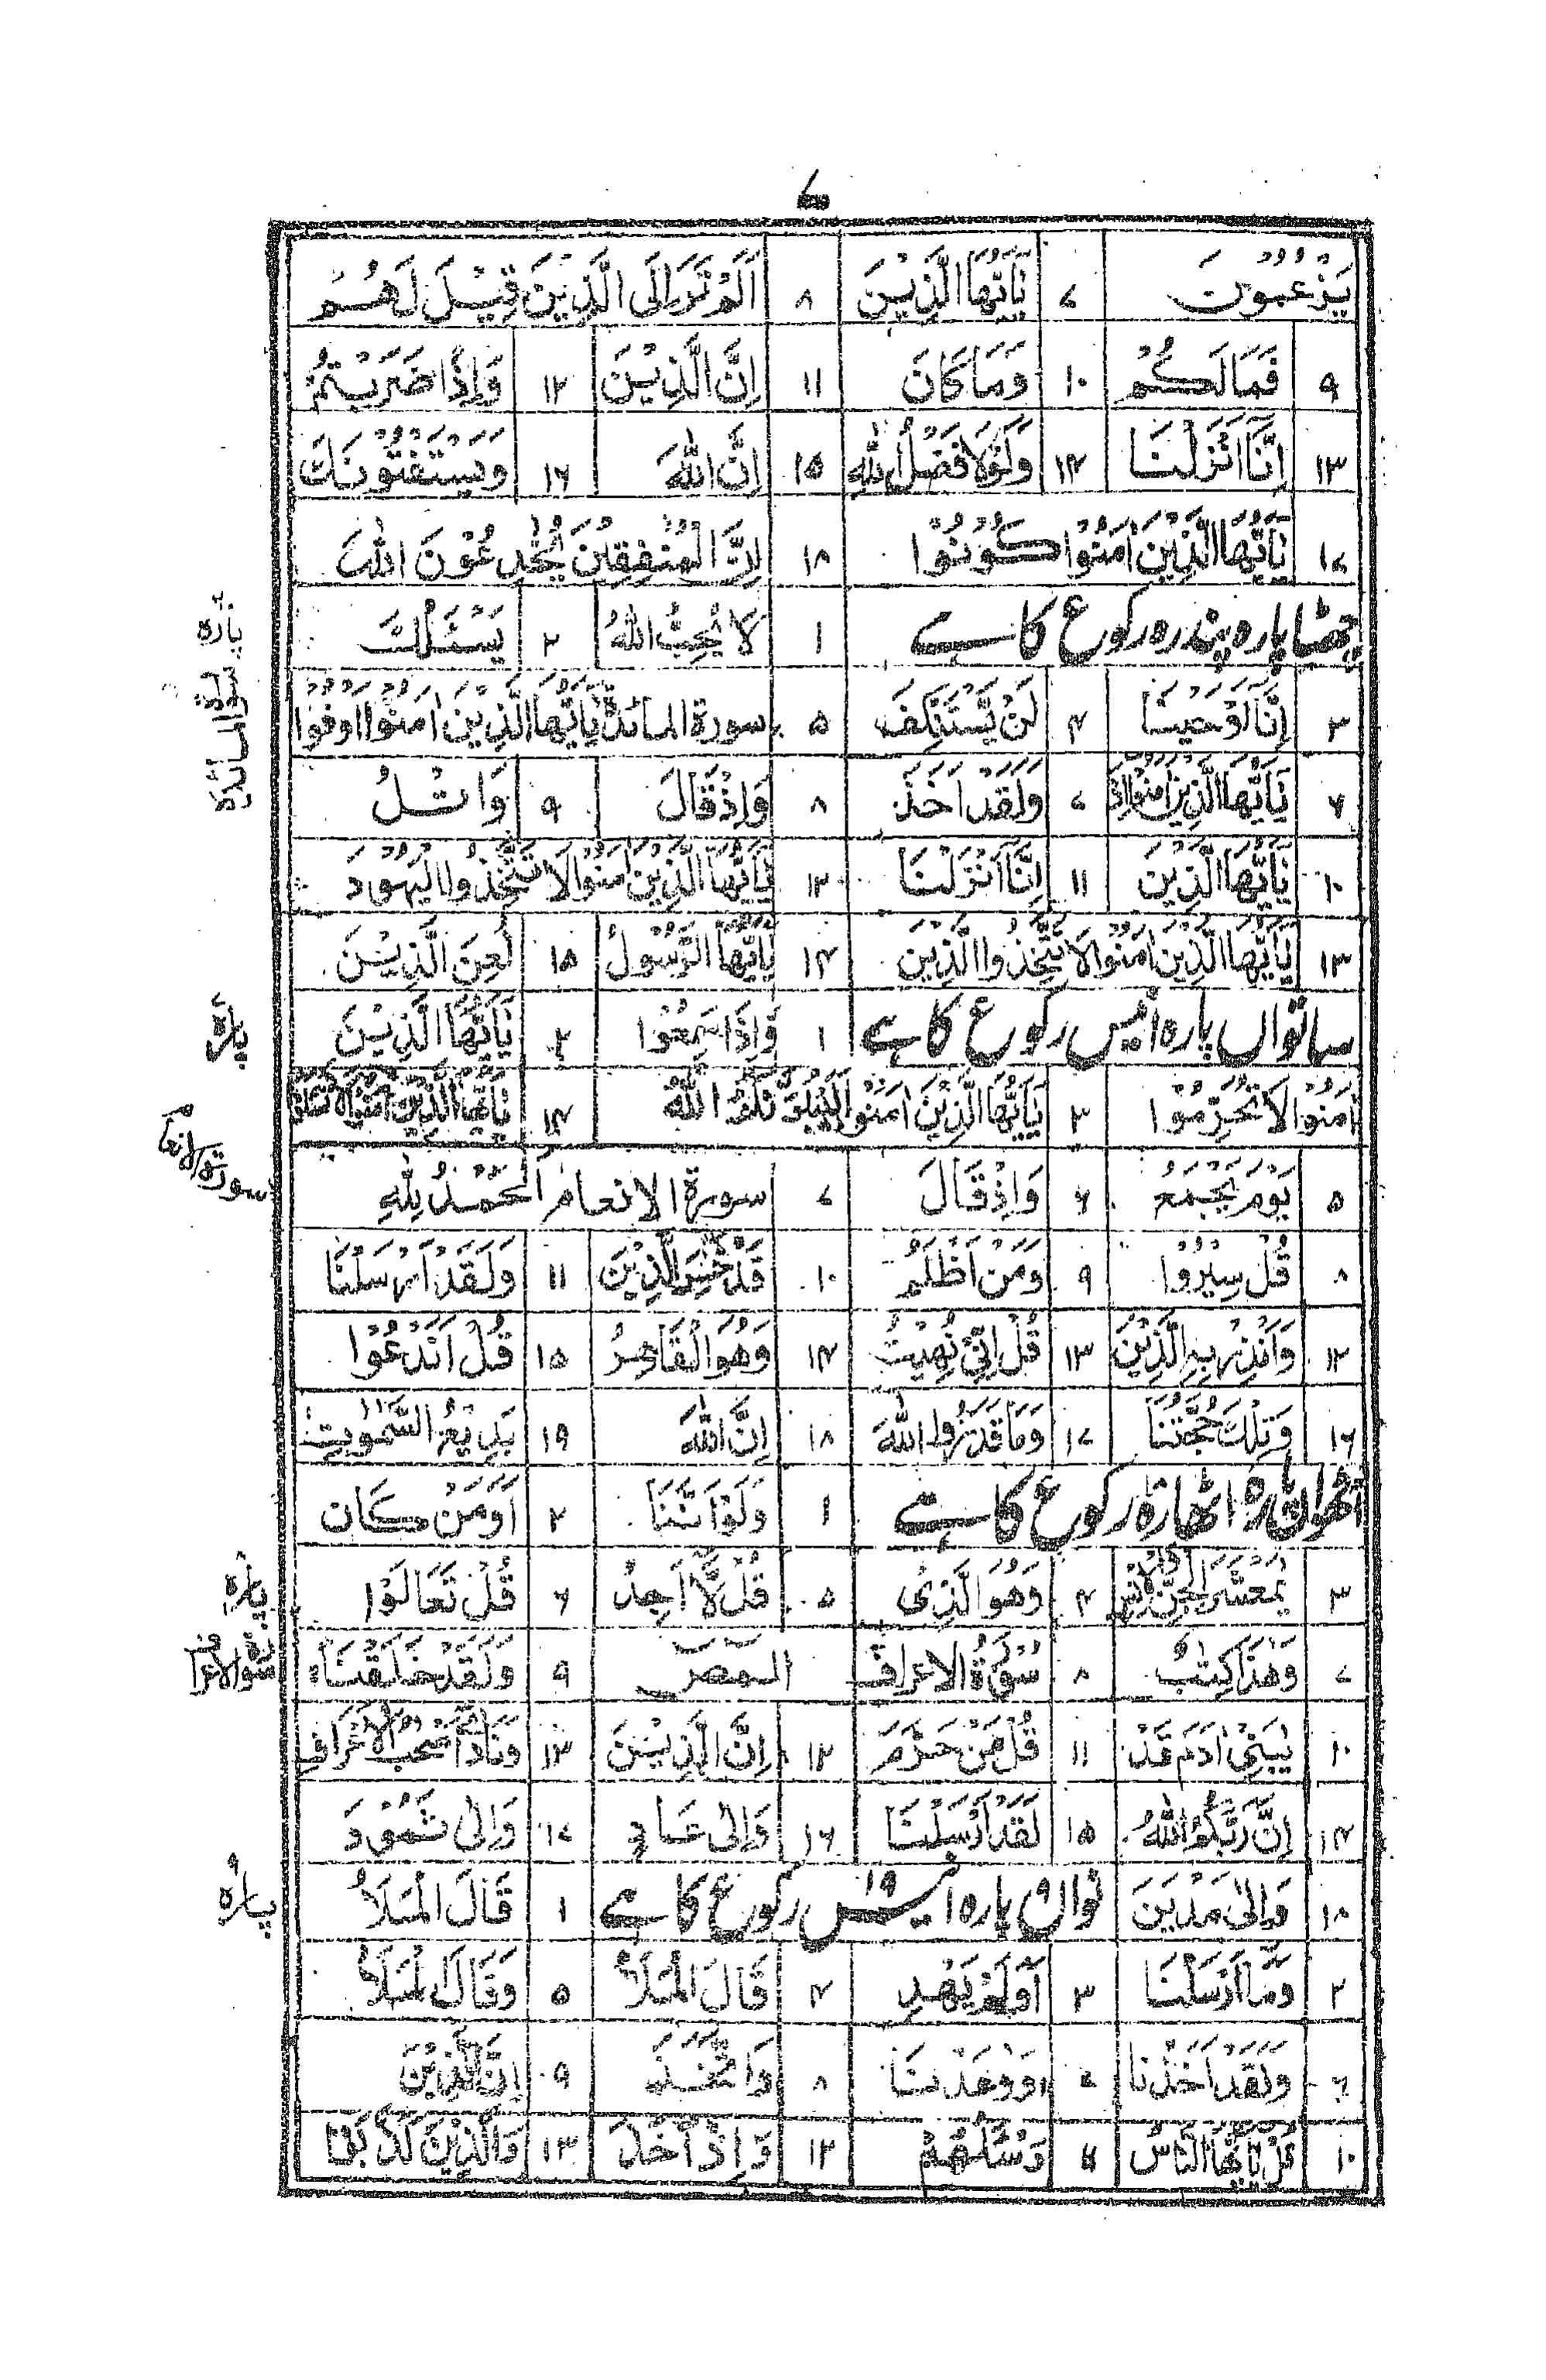 ۷
يَزْعُمُوْنَ ۷ يٰٓاَيُّهَا الَّذِيْنَ ۸ اَلَمْ تَرَ اِلَى الَّذِيْنَ قِيْلَ لَهُمْ
۹ فَمَا لَكُمْ ۱۰ وَمَا كَانَ ۱۱ اِنَّ الَّذِيْنَ ۱۲ وَاِذَا ضَرَبْتُمْ
۱۳ اِنَّآ اَنْزَلْنَا ۱۴ وَلَوْلَا فَضْلُ اللّٰهِ ۱۵ اِنَّ اللّٰهَ ۱۶ وَيَسْتَفْتُوْنَكَ
۱۷ يٰٓاَيُّهَا الَّذِيْنَ اٰمَنُوْا كُوْنُوْا ۱۸ اِنَّ الْمُنٰفِقِيْنَ يُخٰدِعُوْنَ اللّٰهَ
چھٹا پارہ پندرہ رکوع کا ہے ۱ لَا يُحِبُّ اللّٰهُ ۲ يَسْـَٔلُكَ
پارہ ۶ سورۃ المائدۃ
۳ اِنَّآ اَوْحَيْنَا ۴ لَنْ يَّسْتَنْكِفَ ۵ سورة المائدة يٰٓاَيُّهَا الَّذِيْنَ اٰمَنُوْٓا اَوْفُوْا
۶ يٰٓاَيُّهَا الَّذِيْنَ اٰمَنُوْٓا اِذَا ۷ وَلَقَدْ اَخَذَ ۸ وَاِذْ قَالَ ۹ وَاتْلُ
۱۰ يٰٓاَيُّهَا الَّذِيْنَ ۱۱ اِنَّآ اَنْزَلْنَا ۱۲ يٰٓاَيُّهَا الَّذِيْنَ اٰمَنُوْا لَا تَتَّخِذُوا الْيَهُوْدَ
۱۳ يٰٓاَيُّهَا الَّذِيْنَ اٰمَنُوْا لَا تَتَّخِذُوا الَّذِيْنَ ۱۴ يٰٓاَيُّهَا الرَّسُوْلُ ۱۵ لُعِنَ الَّذِيْنَ
ساتواں پارہ انیس رکوع کا ہے ۱ وَاِذَا سَمِعُوْا ۲ يٰٓاَيُّهَا الَّذِيْنَ
پارہ ۷
اٰمَنُوْا لَا تُحَرِّمُوْا ۳ يٰٓاَيُّهَا الَّذِيْنَ اٰمَنُوْا لَيَبْلُوَنَّكُمُ اللّٰهُ ۴ يٰٓاَيُّهَا الَّذِيْنَ اٰمَنُوْا لَا تَسْـَٔلُوْا
سورۃ الانعام
۵ يَوْمَ يَجْمَعُ ۶ وَاِذْ قَالَ ۷ سورة الانعام اَلْحَمْدُ لِلّٰهِ
۸ قُلْ سِيْرُوْا ۹ وَمَنْ اَظْلَمُ ۱۰ قَدْ خَسِرَ الَّذِيْنَ ۱۱ وَلَقَدْ اَرْسَلْنَا
۱۲ وَاَنْذِرْ بِهِ الَّذِيْنَ ۱۳ قُلْ اِنِّيْ نُهِيْتُ ۱۴ وَهُوَ الْقَاهِرُ ۱۵ قُلْ اَنَدْعُوْا
۱۶ وَتِلْكَ حُجَّتُنَا ۱۷ وَمَا قَدَرُوا اللّٰهَ ۱۸ اِنَّ اللّٰهَ ۱۹ بَدِيْعُ السَّمٰوٰتِ
آٹھواں پارہ اٹھارہ رکوع کا ہے ۱ وَلَوْ اَنَّنَا ۲ اَوَمَنْ كَانَ
پارہ ۸
۳ يٰمَعْشَرَ الْجِنِّ وَالْاِنْسِ ۴ وَهُوَ الَّذِىْ ۵ قُلْ لَّآ اَجِدُ ۶ قُلْ تَعَالَوْا
سورۃ الاعراف
۷ وَهٰذَا كِتٰبٌ ۸ سُوْرَةُ الاعراف المص ۹ وَلَقَدْ خَلَقْنَا
۱۰ يٰبَنِىْٓ اٰدَمَ قَدْ ۱۱ قُلْ مَنْ حَرَّمَ ۱۲ اِنَّ الَّذِيْنَ ۱۳ وَنَادٰٓى اَصْحٰبُ الْاَعْرَافِ
۱۴ اِنَّ رَبَّكُمُ اللّٰهُ ۱۵ لَقَدْ اَرْسَلْنَا ۱۶ وَاِلٰى عَادٍ ۱۷ وَاِلٰى ثَمُوْدَ
۱۸ وَاِلٰى مَدْيَنَ نواں پارہ انیس ۱۹ رکوع کا ہے ۱ قَالَ الْمَلَاُ
پارہ ۹
۲ وَمَآ اَرْسَلْنَا ۳ اَوَلَمْ يَهْدِ ۴ قَالَ الْمَلَاُ ۵ وَقَالَ الْمَلَاُ
۶ وَلَقَدْ اَخَذْنَا ۷ وَوٰعَدْنَا ۸ وَاتَّخَذَ ۹ اِنَّ الَّذِيْنَ
۱۰ قُلْ يٰٓاَيُّهَا النَّاسُ ۱۱ وَسْـَٔلْهُمْ ۱۲ وَاِذْ اَخَذَ ۱۳ وَالَّذِيْنَ كَذَّبُوْا